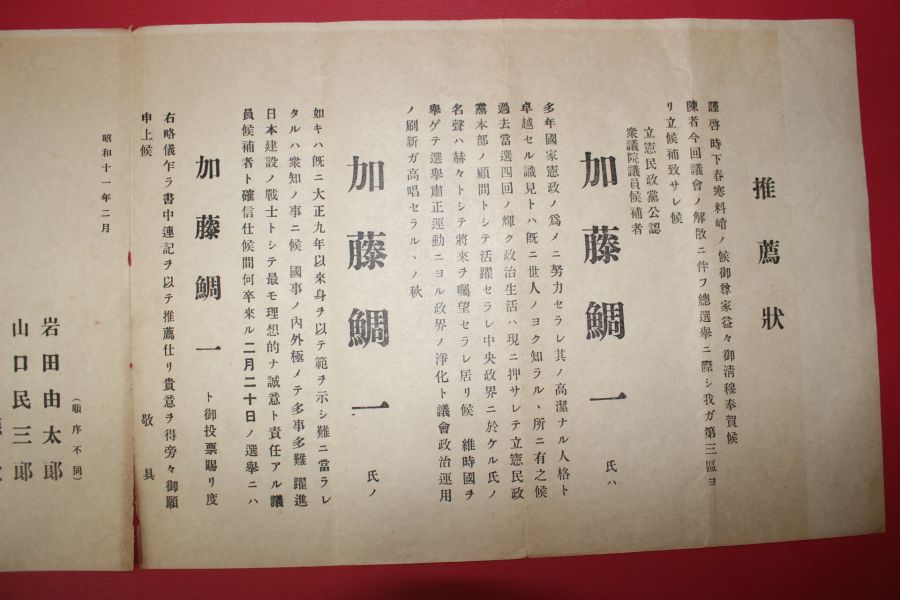 推薦狀
謹啓 時下春寒料峭ノ候御尊家益々御淸穆奉賀候
陳者今回議會ノ解散ニ伴フ總選擧ニ際シ我ガ第三區ヨ
リ立候補致サレ候
立憲民政黨公認
衆議院議員候補者
加藤鯛一 氏ハ
多年國家憲政ノ爲メニ努力セラレ其ノ高潔ナル人格ト
卓越セル識見トハ旣ニ世人ノヨク知ラルヽ所ニ有之候
過去當選四回ノ輝ク政治生活ハ現ニ押サレテ立憲民政
黨本部ノ顧問トシテ活躍セラレ中央政界ニ於ケル氏ノ
名聲ハ赫々トシテ將來ヲ囑望セラレ居リ候 維時國ヲ
擧ゲテ選擧肅正運動ニヨル政界ノ淨化ト議會政治運用
ノ刷新ガ高唱セラルヽノ秋
加藤鯛一 氏ノ
如キハ旣ニ大正九年以來身ヲ以テ範ヲ示シ難ニ當ラレ
タルハ衆知ノ事ニ候 國事ノ內外極メテ多事多難 躍進
日本建設ノ戰士トシテ最モ理想的ナ誠意ト責任アル議
員候補者ト確信仕候間何卒來ル二月二十日ノ選擧ニハ
加藤鯛一 ト御投票賜リ度
右略儀乍ラ書中連記ヲ以テ推薦仕リ貴意ヲ得旁々御願
申上候 敬具
昭和十一年二月
(順序不同)
岩田由太郞
山口民三郞